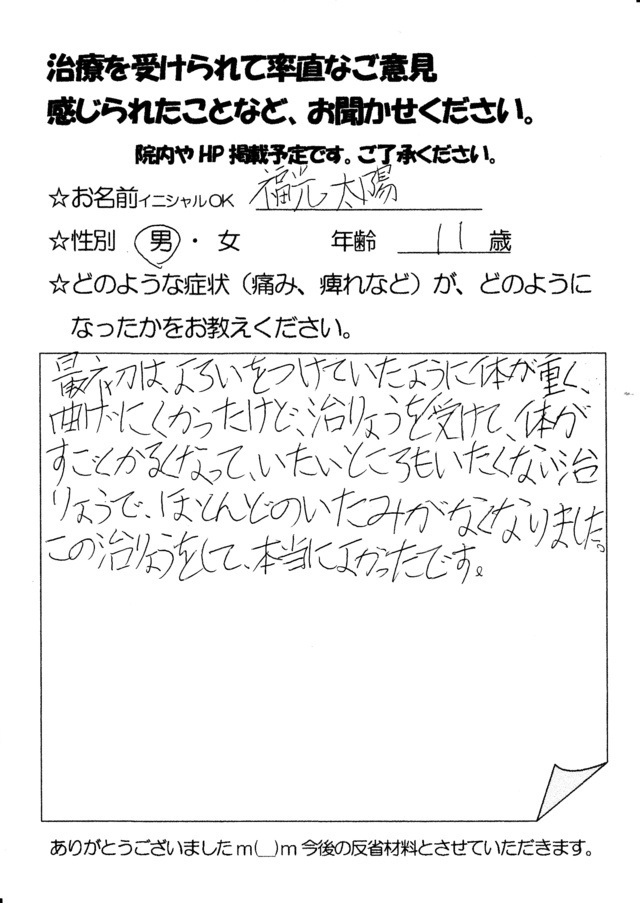 治療を受けられて率直なご意見
感じられたことなど、お聞かせください。
院内やHP掲載予定です。ご了承ください。
☆お名前イニシャルOK 福光 太陽
☆性別 男・女 年齢 11 歳
☆どのような症状（痛み、痺れなど）が、どのように
なったかをお教えください。
最初は、よろいをつけていたように体が重く、
曲げにくかったけど、治りょうを受けて、体が
すごくかるくなって、いたいところもいたくない治
りょうで、ほとんどのいたみがなくなりました。
この治りょうをして、本当によかったです。
ありがとうございましたm(__)m今後の反省材料とさせていただきます。